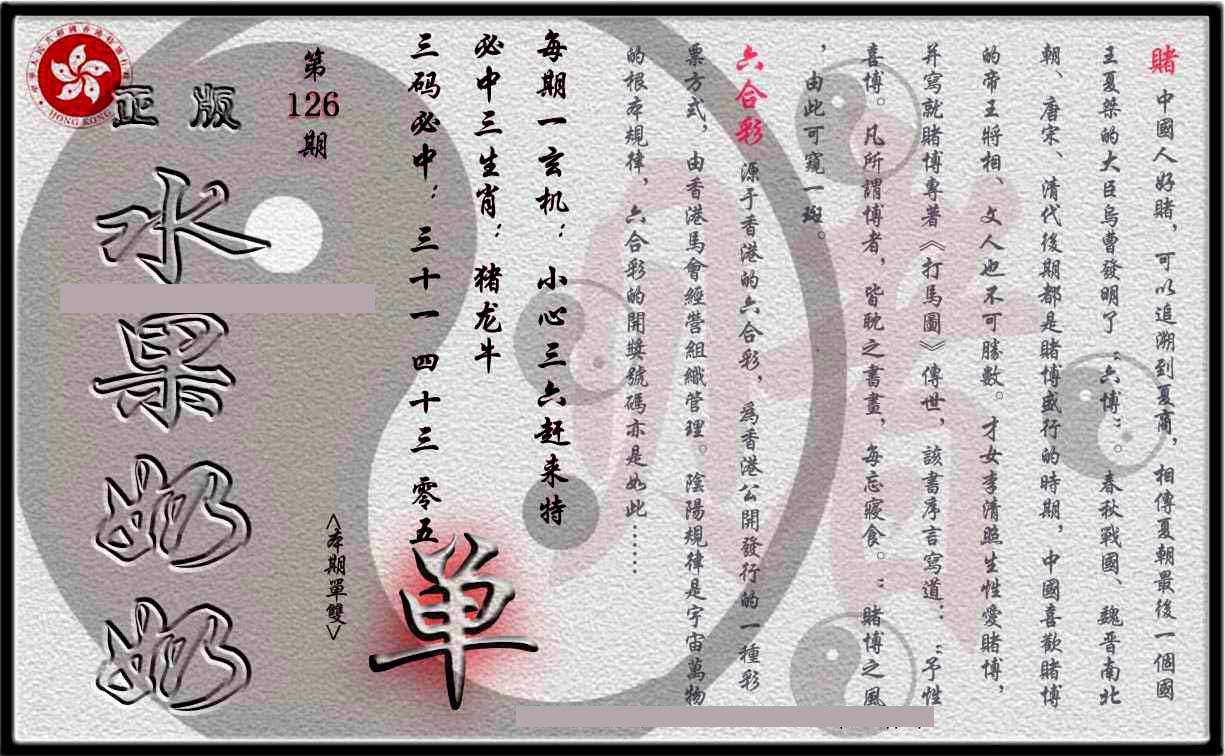 賭 中國人好賭，可以追溯到夏商，相傳夏朝最後一個國
王夏桀的大臣烏曹發明了“六博”。春秋戰國、魏晋南北
朝、唐宋、清代後期都是賭博盛行的時期，中國喜歡賭博
的帝王將相、文人也不可勝數。才女李清照生性愛賭博，
并寫就賭博專著《打馬圖》傳世，該書序言寫道：“予性
喜博。凡所謂博者，皆耽之書畫，每忘寢食。”賭博之風
，由此可窺一斑。
六合彩 源于香港的六合彩，為香港公開發行的一種彩
票方式，由香港馬會經營組織管理。陰陽規律是宇宙萬物
的根本規律，六合彩的開獎號碼亦是如此……
每期一玄机：小心三六赶来特
必中三生肖：猪龙牛
三码必中：三十一 四十三 零五
单
<本期單雙>
第
126
期
正版
水果奶奶
HONG KONG